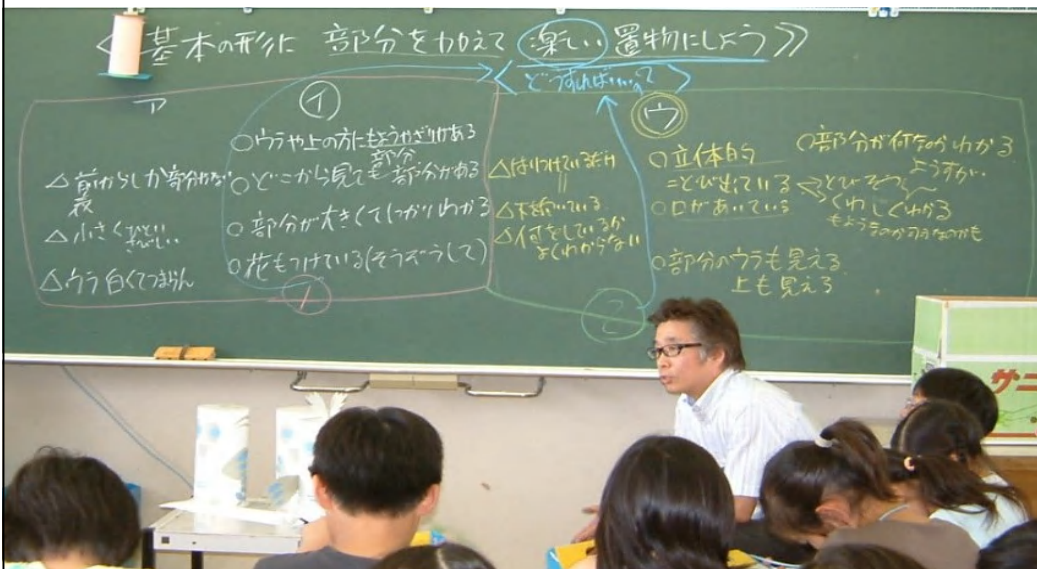 ≪基本の形に 部分を加えて 楽しい置物にしよう≫
<どうすれば……?>
ア
△前からしか部分がない
△小さくて
さびしい
△ウラ 白くてつまらん
イ
○ウラや上の方にもようやかざりがある
部分
○どこから見ても部分がある
○部分が大きくてはっきりわかる
○花もつけている(そうぞうして)
1
△はりつけているだけ
||
△下を向いている
△何をしているか
よくわからない
ウ
○立体的
=とび出ている
○口があいている
○部分のウラも見える
上も見える
○部分が何なのかわかる
ようすが‥
とびそう
くわしくわかる
2
サニ